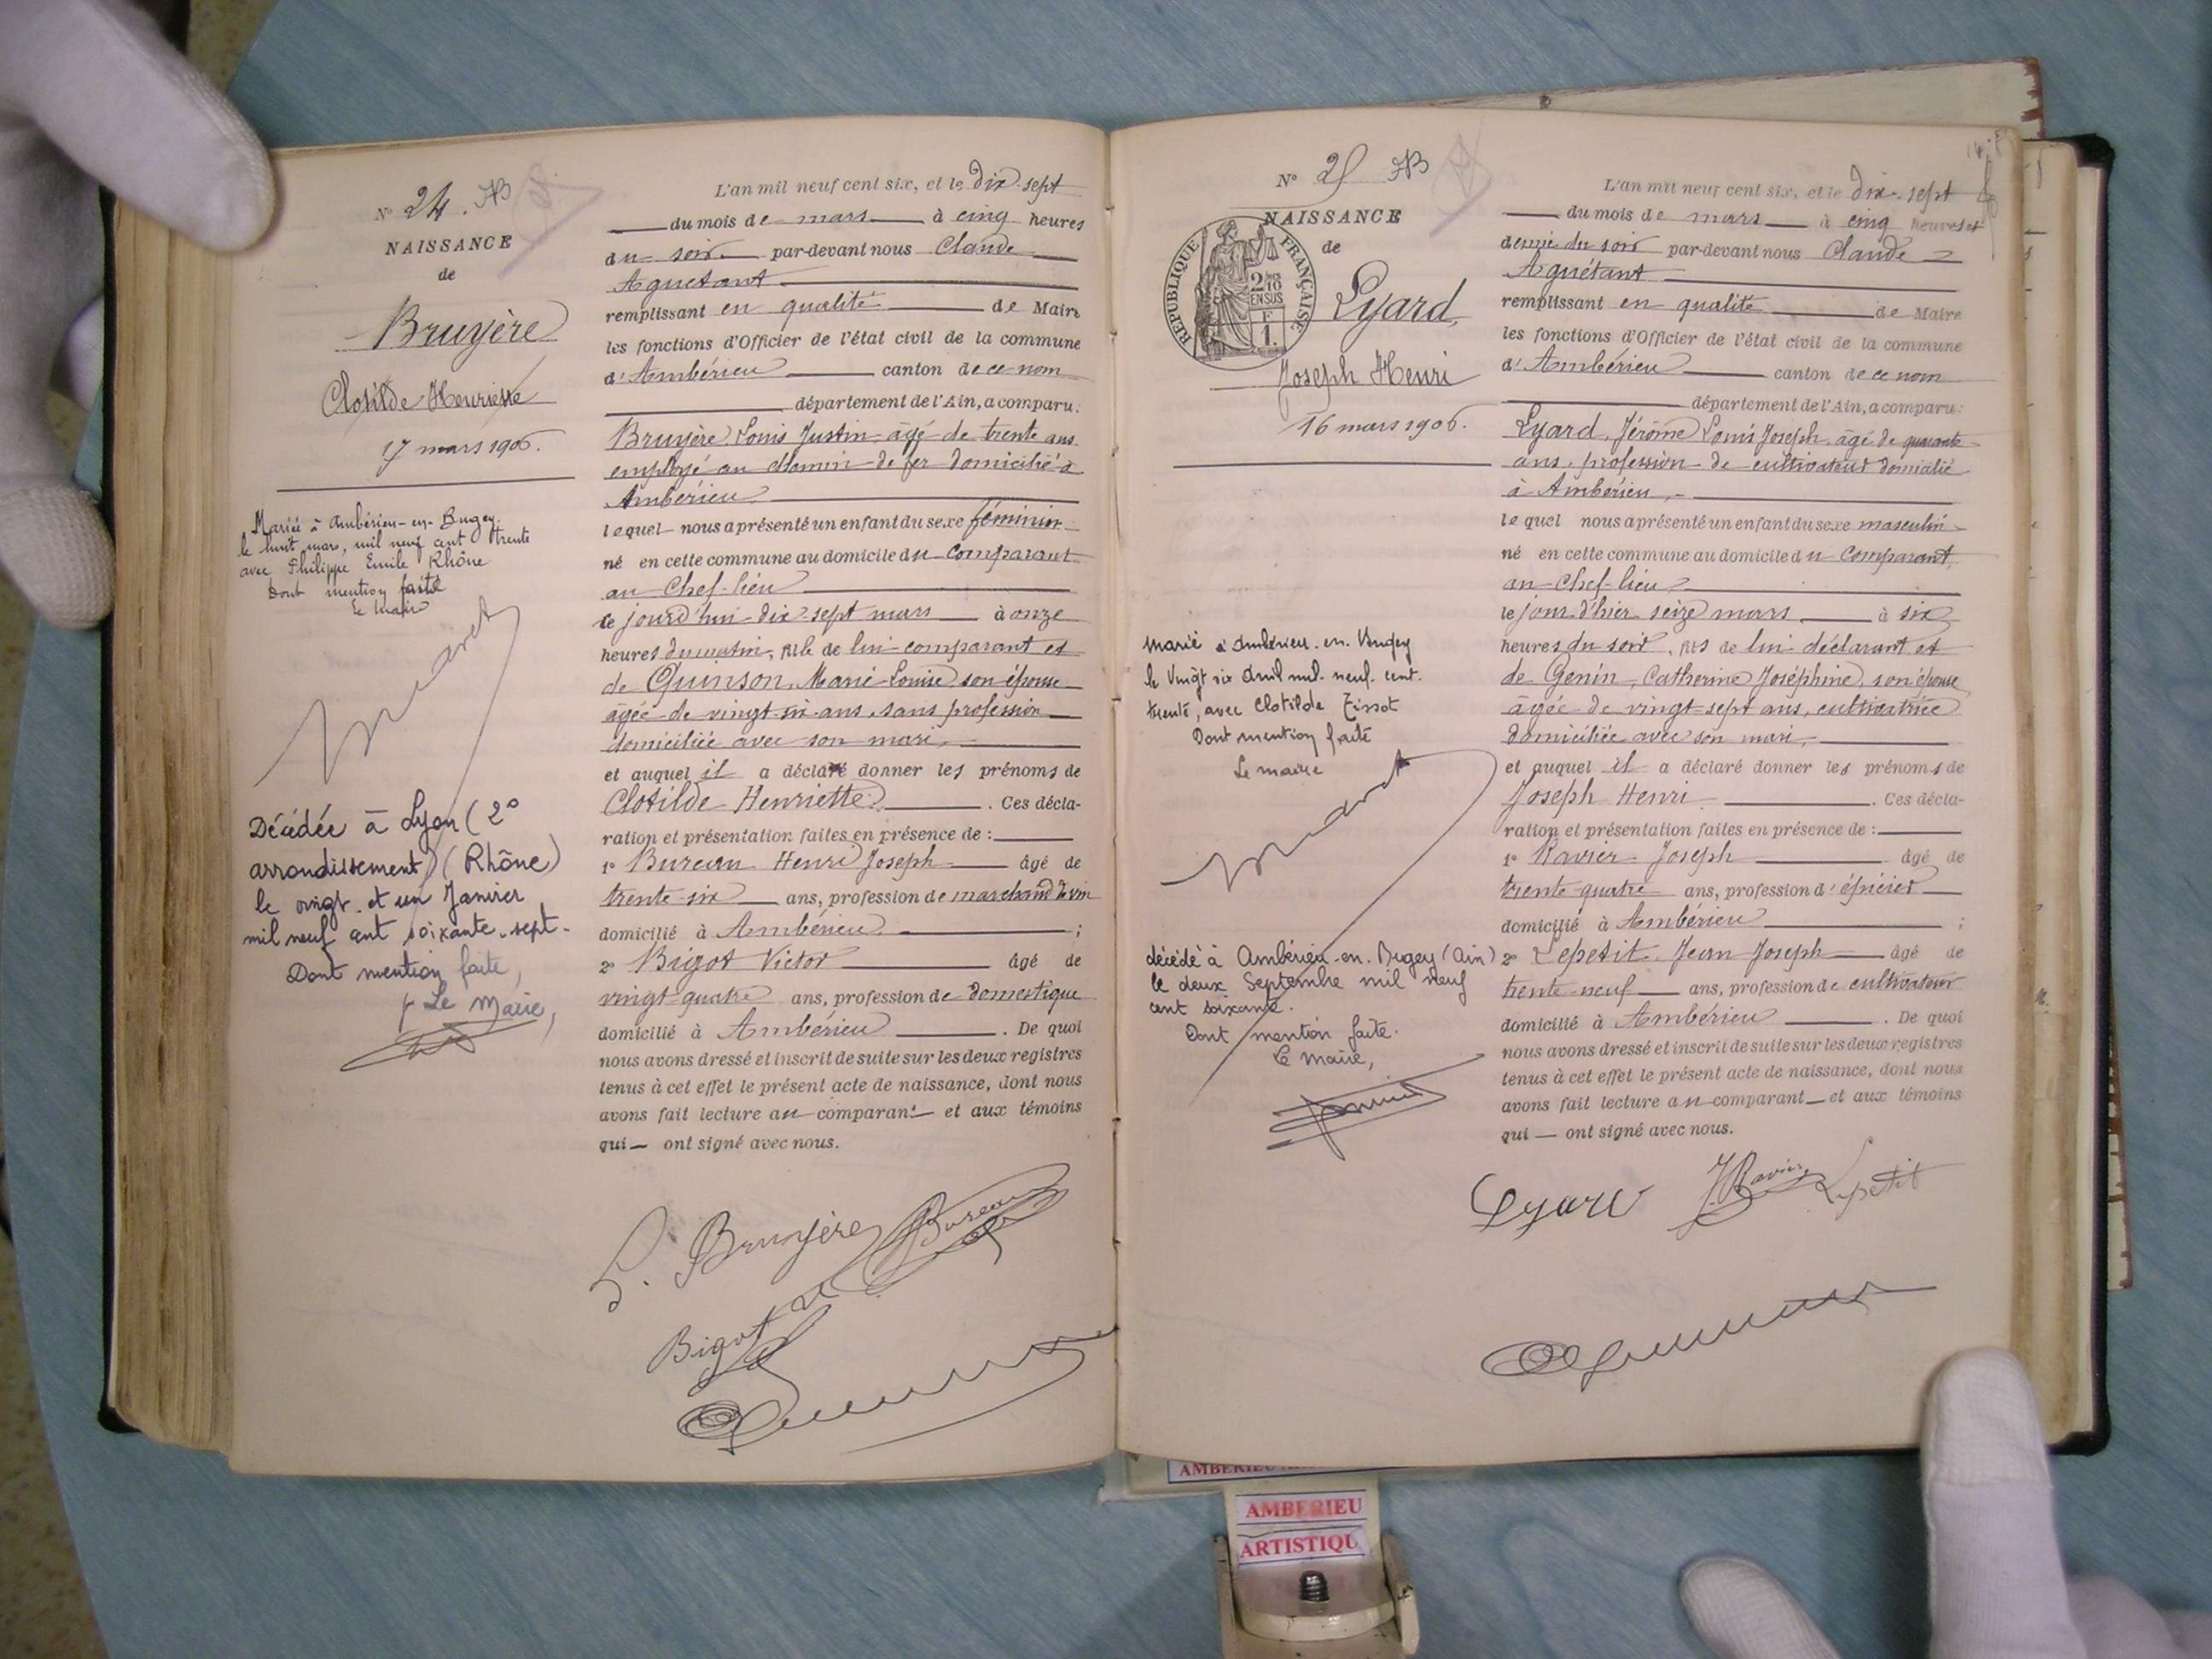 N° 24. AB
NAISSANCE
de
Bruyère
Clotilde Henriette
17 mars 1906.
Mariée à Ambérieu-en-Bugey
le huit mars, mil neuf cent trente
avec Philippe Emile Rhône
Dont mention faite
Le maire
Décédée à Lyon (2°
arrondissement) (Rhône)
le vingt et un Janvier
mil neuf cent soixante-sept-
Dont mention faite,
Le Maire,
L'an mil neuf cent six, et le dix-sept
du mois de mars à cinq heures
du soir par-devant nous Claude
Aguétant
remplissant en qualité de Maire
les fonctions d'Officier de l'état civil de la commune
d'Ambérieu canton de ce nom
département de l'Ain, a comparu:
Bruyère Louis Justin âgé de trente ans
employé au chemin de fer domicilié à
Ambérieu
lequel nous a présenté un enfant du sexe féminin
né en cette commune au domicile du comparant
au Chef-lieu
le jourd'hui dix-sept mars à onze
heures du matin, fille de lui comparant et
de Quinson, Marie-Louise, son épouse
âgée de vingt-six ans, sans profession
domiciliée avec son mari,
et auquel il a déclaré donner les prénoms de
Clotilde Henriette. Ces décla-
ration et présentation faites en présence de :
1° Bureau Henri Joseph âgé de
trente-six ans, profession de marchand de vin
domicilié à Ambérieu ;
2° Bigot Victor âgé de
vingt-quatre ans, profession de domestique
domicilié à Ambérieu. De quoi
nous avons dressé et inscrit de suite sur les deux registres
tenus à cet effet le présent acte de naissance, dont nous
avons fait lecture au comparant et aux témoins
qui ont signé avec nous.
L. Bruyère Bureau
Bigot
N° 25 AB
NAISSANCE
de
REPUBLIQUE FRANÇAISE
2/10 EN SUS
F 1.
Lyard,
Joseph Henri
16 mars 1906.
Marié à Ambérieu-en-Bugey
le Vingt six Avril mil neuf cent
trente, avec Clotilde Tissot
Dont mention faite
Le maire
décédé à Ambérieu-en-Bugey (Ain)
le deux Septembre mil neuf
cent soixante.
Dont mention faite.
Le Maire,
L'an mil neuf cent six, et le dix-sept
du mois de mars à cinq heures et
demie du soir par-devant nous Claude
Aguétant
remplissant en qualité de Maire
les fonctions d'Officier de l'état civil de la commune
d'Ambérieu canton de ce nom
département de l'Ain, a comparu:
Lyard, Jérôme Louis Joseph, âgé de quarante
ans, profession de cultivateur domicilié
à Ambérieu,
lequel nous a présenté un enfant du sexe masculin
né en cette commune au domicile du comparant,
au Chef-lieu
le jour d'hier seize mars à six
heures du soir, fils de lui déclarant et
de Genin, Catherine Joséphine, son épouse
âgée de vingt-sept ans, cultivatrice
domiciliée avec son mari,
et auquel il a déclaré donner les prénoms de
Joseph Henri. Ces décla-
ration et présentation faites en présence de :
1° Ravier Joseph âgé de
trente-quatre ans, profession d'épicier
domicilié à Ambérieu ;
2° Lepetit Jean Joseph âgé de
trente-neuf ans, profession de cultivateur
domicilié à Ambérieu. De quoi
nous avons dressé et inscrit de suite sur les deux registres
tenus à cet effet le présent acte de naissance, dont nous
avons fait lecture au comparant et aux témoins
qui ont signé avec nous.
Lyard J Ravier Lepetit
AMBERIEU
ARTISTIQU